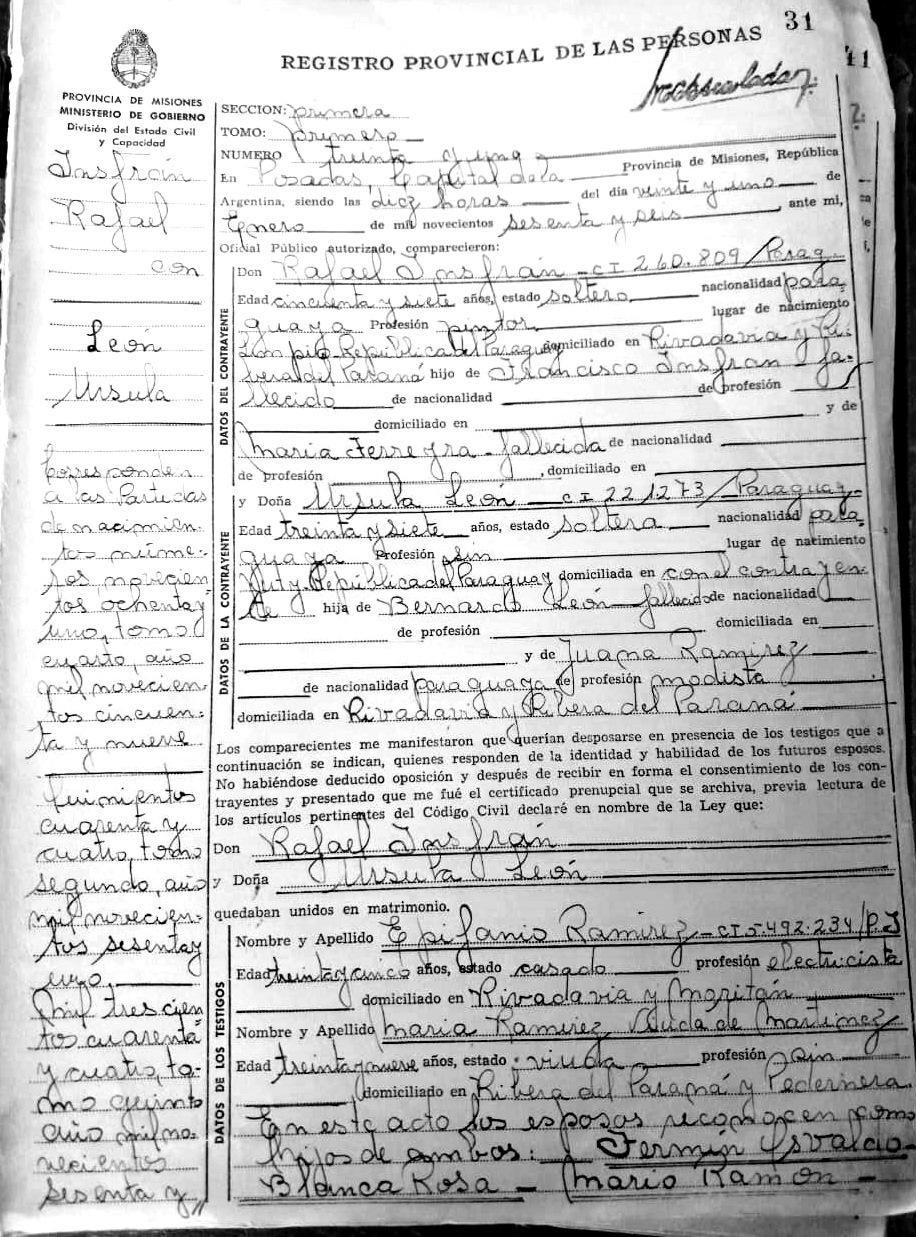 31
REGISTRO PROVINCIAL DE LAS PERSONAS
41
PROVINCIA DE MISIONES
MINISTERIO DE GOBIERNO
División del Estado Civil
y Capacidad
Insfrán
Rafael
con
León
Ursula
Corresponden
a las Partidas
de nacimien-
tos núme-
ros novecien
tos ochenta y
uno, tomo
cuarto, año
mil novecien-
tos cincuen-
ta y nueve
Quinientos
cuarenta y
cuatro, tomo
segundo, año
mil novecien-
tos sesenta y
uno,
Mil trescien
tos cuarenta
y cuatro, to-
mo quinto
año mil no-
vecientos
sesenta y
SECCION: primera
TOMO: primero
NUMERO treinta y uno
En Posadas, Capital de la Provincia de Misiones, República
Argentina, siendo las diez horas del día veinte y uno de
Enero de mil novecientos sesenta y seis, ante mi,
Oficial Público autorizado, comparecieron:
DATOS DEL CONTRAYENTE
Don Rafael Insfrán - CI 260.809/Parag.
Edad cincuenta y siete años, estado soltero nacionalidad para
guaya Profesión pintor lugar de nacimiento
Limpio, República del Paraguay domiciliado en Rivadavia y Ri-
bera del Paraná hijo de Francisco Insfran - fa-
llecido de nacionalidad de profesión
domiciliado en y de
Maria Ferreyra - fallecida de nacionalidad
de profesión , domiciliado en
DATOS DE LA CONTRAYENTE
y Doña Ursula León - CI 221273/Paraguay-
Edad treinta y siete años, estado soltera nacionalidad para
guaya Profesión sin lugar de natimiento
República del Paraguay domiciliada en con el contrayen-
te hija de Bernardo León - fallecido de nacionalidad
de profesión domiciliada en
y de Juana Ramirez
de nacionalidad paraguaya de profesión modista
domiciliada en Rivadavia y Ribera del Paraná
Los comparecientes me manifestaron que querían desposarse en presencia de los testigos que a
continuación se indican, quienes responden de la identidad y habilidad de los futuros esposos.
No habiéndose deducido oposición y después de recibir en forma el consentimiento de los con-
trayentes y presentado que me fué el certificado prenupcial que se archiva, previa lectura de
los artículos pertinentes del Código Civil declaré en nombre de la Ley que:
Don Rafael Insfrán
y Doña Ursula León
quedaban unidos en matrimonio.
DATOS DE LOS TESTIGOS
Nombre y Apellido Epifanio Ramirez - CI 5.492.234/P.F
Edad treinta y cinco años, estado casado profesión electricista
domiciliado en Rivadavia y Moritán
Nombre y Apellido Maria Ramirez Viuda de Martinez
Edad treinta y nueve años, estado viuda profesión sin
domiciliado en Ribera del Paraná y Pedernera
En este acto los esposos reconocen como
hijos de ambos: Fermín Osvaldo-
Blanca Rosa - Mario Ramon -